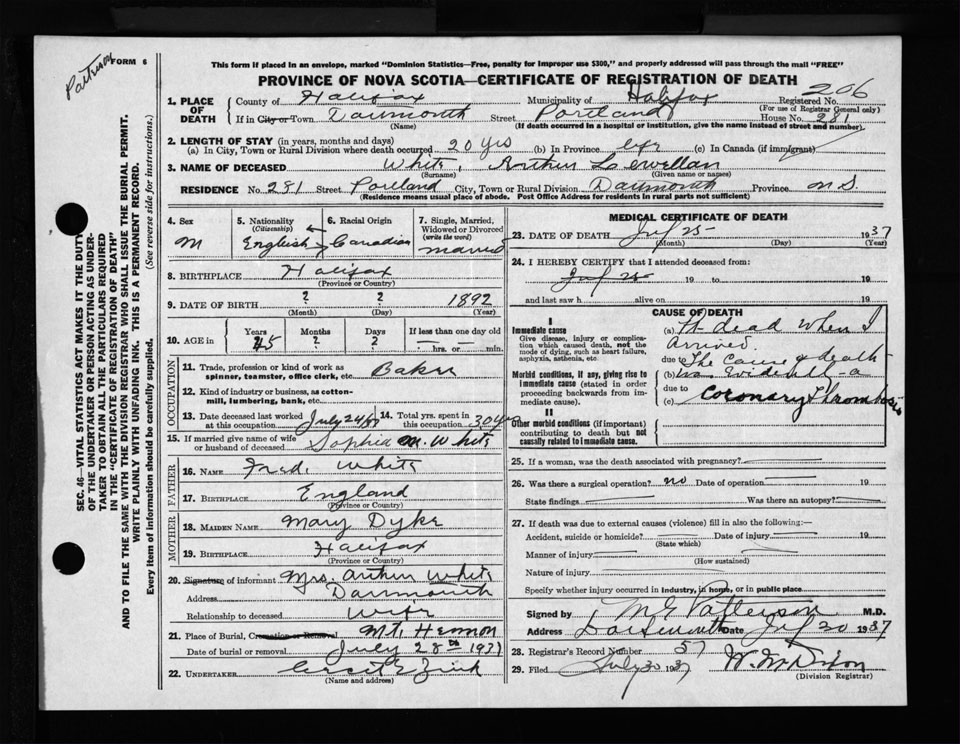 Patterson
FORM 6
This form if placed in an envelope, marked "Dominion Statistics—Free, penalty for improper use $300," and properly addressed will pass through the mail "FREE"
PROVINCE OF NOVA SCOTIA—CERTIFICATE OF REGISTRATION OF DEATH
206
1. PLACE OF DEATH
County of Halifax Municipality of Halifax Registered No.
(For use of Registrar General only)
If in City or Town Dartmouth Street Portland House No. 281
(Name) (If death occurred in a hospital or institution, give the name instead of street and number)
2. LENGTH OF STAY (in years, months and days)
(a) In City, Town or Rural Division where death occurred 20 yrs (b) In Province life (c) In Canada (if immigrant)
3. NAME OF DECEASED White Arthur Lewellan
(Surname) (Given name or names)
RESIDENCE No. 281 Street Portland City, Town or Rural Division Dartmouth Province N S
(Residence means usual place of abode. Post Office Address for residents in rural parts not sufficient)
4. Sex
M
5. Nationality
(Citizenship)
English
6. Racial Origin
Canadian
7. Single, Married, Widowed or Divorced
(write the word)
married
8. BIRTHPLACE Halifax
(Province or Country)
9. DATE OF BIRTH ? ? 1892
(Month) (Day) (Year)
10. AGE in
Years Months Days If less than one day old
45 ? ? hrs. or min.
OCCUPATION
11. Trade, profession or kind of work as spinner, teamster, office clerk, etc. Baker
12. Kind of industry or business, as cotton-mill, lumbering, bank, etc.
13. Date deceased last worked at this occupation July 24/37
14. Total yrs. spent in this occupation 30 yrs
15. If married give name of wife or husband of deceased Sophia M. White
FATHER
16. NAME Fred. White
17. BIRTHPLACE England
(Province or Country)
MOTHER
18. MAIDEN NAME Mary Dyke
19. BIRTHPLACE Halifax
(Province or Country)
20. Signature of informant Mrs. Arthur White
Address Dartmouth
Relationship to deceased wife
21. Place of Burial, Cremation or Removal Mt. Hermon
Date of burial or removal July 28th 1937
22. UNDERTAKER Zink
(Name and address)
MEDICAL CERTIFICATE OF DEATH
23. DATE OF DEATH July 25 1937
(Month) (Day) (Year)
24. I HEREBY CERTIFY that I attended deceased from:
July 25 19 to 19
and last saw h alive on 19
CAUSE OF DEATH
I
Immediate cause
Give disease, injury or complication which caused death, not the mode of dying, such as heart failure, asphyxia, asthenia, etc.
Morbid conditions, if any, giving rise to immediate cause (stated in order proceeding backwards from immediate cause).
II
Other morbid conditions (if important) contributing to death but not causally related to immediate cause.
(a) Pt dead when I
arrived.
due to The cause of death
(b) was evidently a
due to
(c) Coronary Thrombosis
25. If a woman, was the death associated with pregnancy?
26. Was there a surgical operation? no Date of operation 19
State findings Was there an autopsy?
27. If death was due to external causes (violence) fill in also the following:—
Accident, suicide or homicide? Date of injury 19
(State which)
Manner of injury
(How sustained)
Nature of injury
Specify whether injury occurred in industry, in home, or in public place
Signed by M G Patterson M.D.
Address Dartmouth Date July 30 1937
28. Registrar's Record Number 57
29. Filed July 30 1937 W. W. Dixon
(Division Registrar)
SEC. 46—VITAL STATISTICS ACT MAKES IT THE DUTY
OF THE UNDERTAKER OR PERSON ACTING AS UNDER-
TAKER TO OBTAIN ALL THE PARTICULARS REQUIRED
IN THE "CERTIFICATE OF REGISTRATION OF DEATH"
AND TO FILE THE SAME WITH THE DIVISION REGISTRAR WHO SHALL ISSUE THE BURIAL PERMIT.
WRITE PLAINLY WITH UNFADING INK. THIS IS A PERMANENT RECORD.
Every item of information should be carefully supplied. (See reverse side for instructions.)